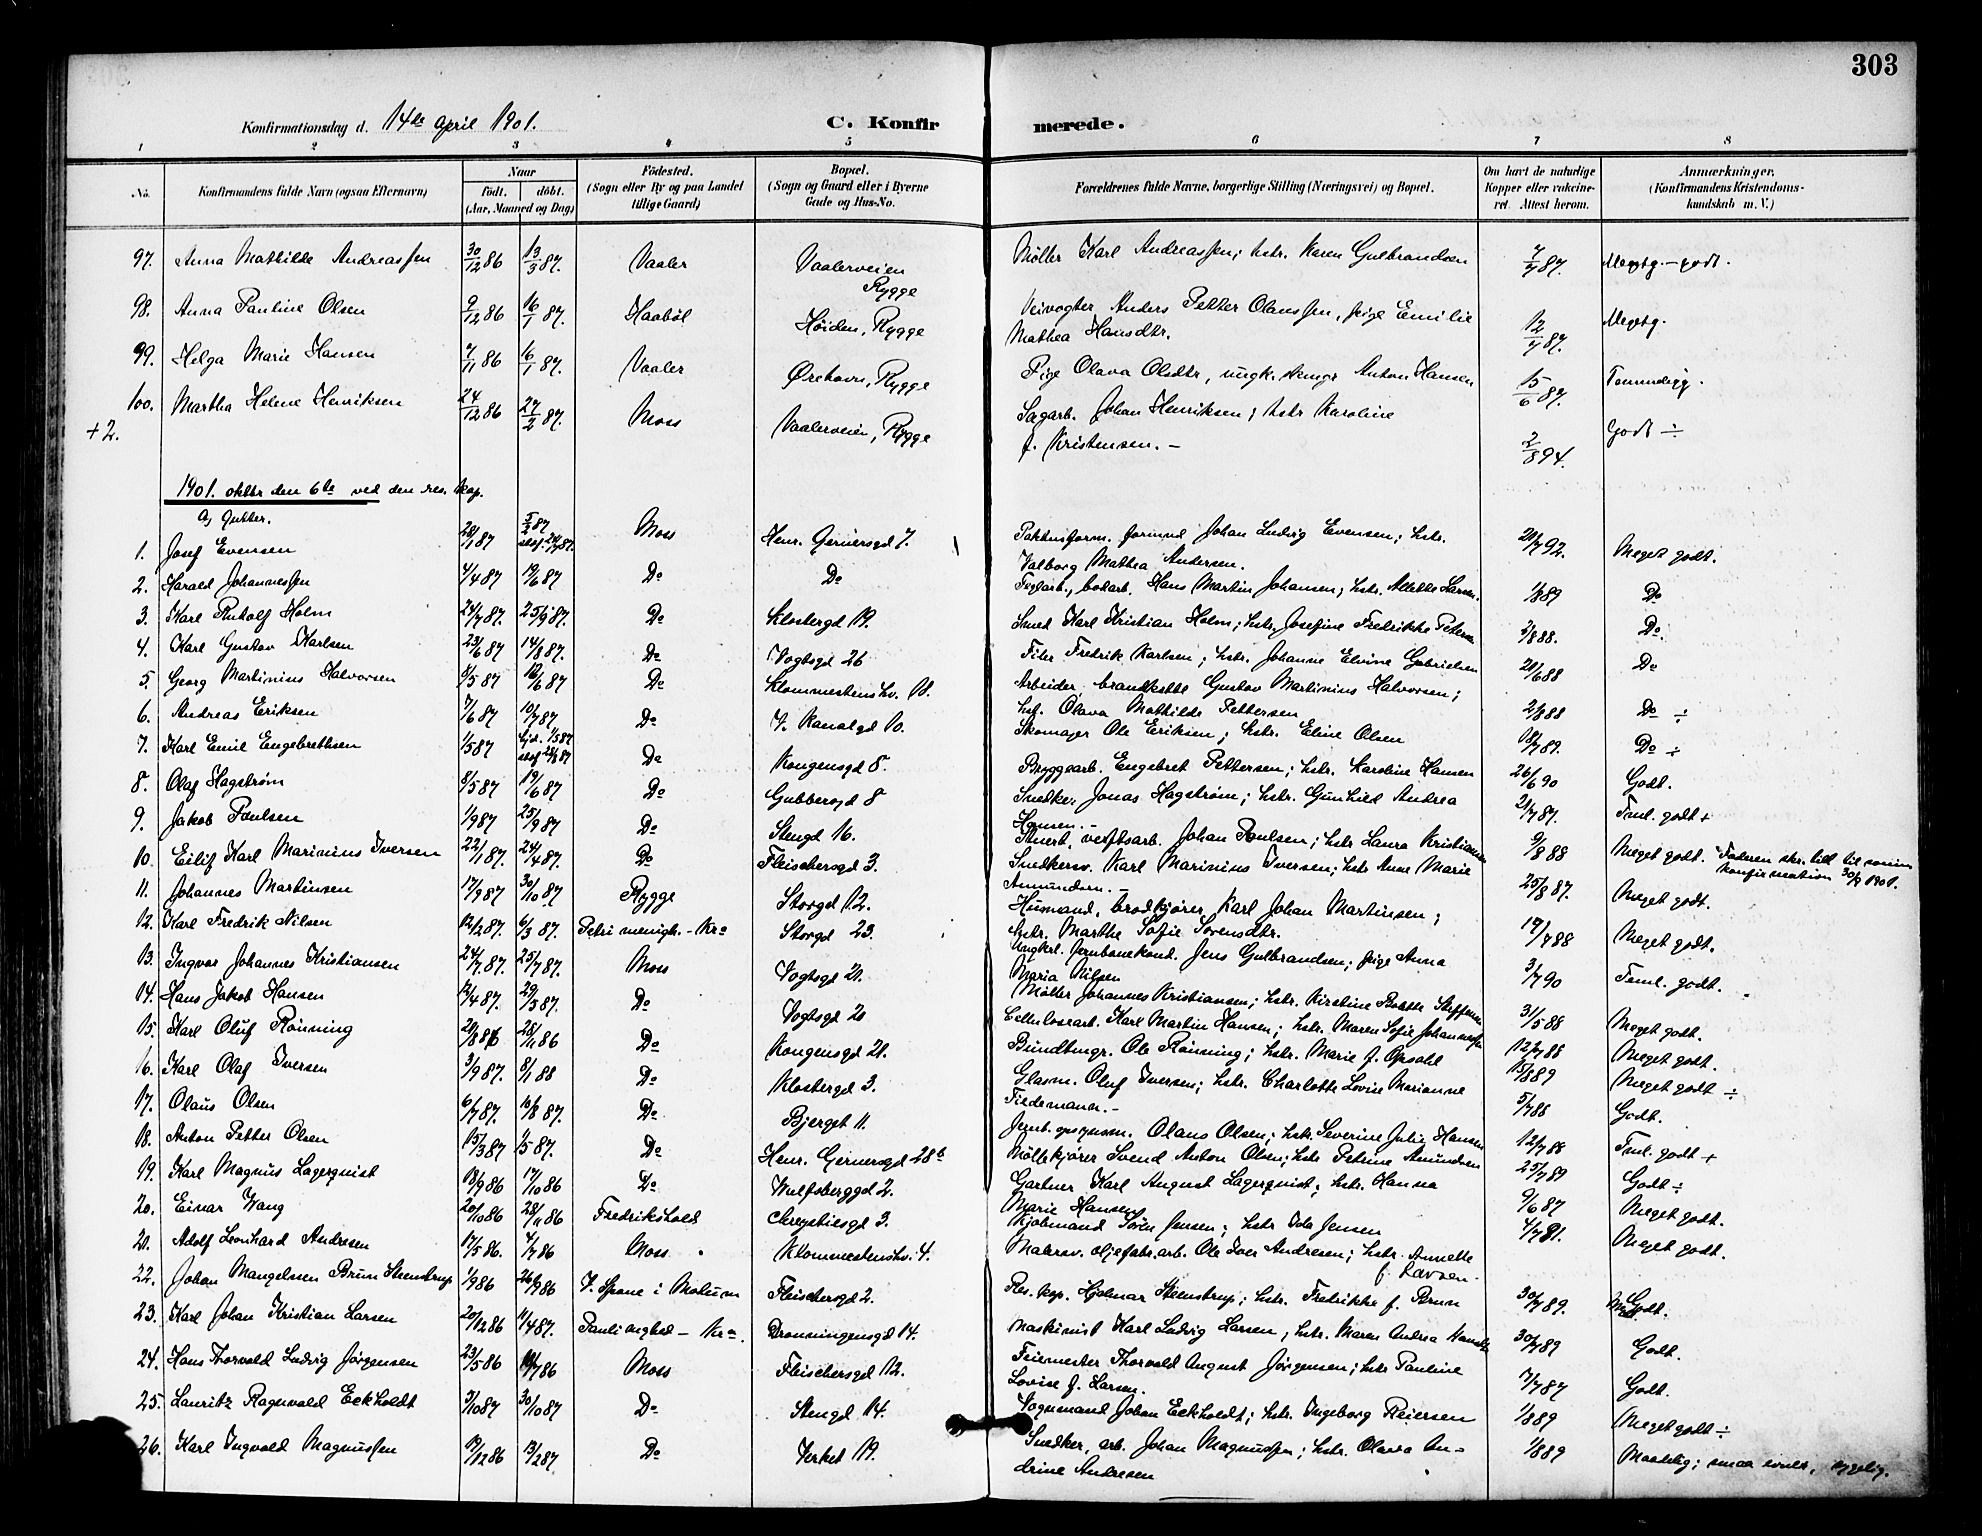 303
Konfirmationsdag d. 14de april 1901. C. Konfirmerede.
1 2 3 4 5 6 7 8
No. Konfirmandens fulde Navn (ogsaa Efternavn) Naar født. døbt. (Aar, Maaned og Dag) Fødested. (Sogn eller By og paa Landet tillige Gaard) Bopæl. (Sogn og Gaard eller i Byerne Gade og Hus-No. Forældrenes fulde Navne, borgerlige Stilling (Næringsvei) og Bopæl. Om havt de naturlige Kopper eller vakcineret. Attest herom. Anmærkninger. (Konfirmandens Kristendomskundskab m. V.)
97. Anna Mathilde Andreassen 30/12 86 13/3 87. Vaaler Vaalerveien Rygge Møller Karl Andreassen; hstr. Karen Gulbrandsen 7/7 87. Megtg. - godt.
98. Anna Pauline Olsen 9/12 86 16/1 87. Haabøl Høiden, Rygge Veivogter Anders Petter Olaussen, pige Emilie Mathea Hansdtr. 12/7 87. Megtg.
99. Helga Marie Hansen 7/11 86 16/1 87. Vaaler Ørehavn, Rygge Pige Olava Olsdtr, ungk. Anton Hansen 15/6 87.
100. Martha Helene Henriksen 24/12 86 27/2 87. Moss Vaalerveien, Rygge Sagarb. Johan Henriksen; hstr Karoline f. Kristensen. - 2/8 94. Godt ÷
+2.
1901. oktbr den 6te ved den res. kap.
a, gutter.
1. Josef Evensen 28/1 87 5/2 87 Moss Henr. Gernersgd 7. formnd Johan Ludvig Evensen; hstr. Valborg Mathea Andersen. 20/7 92. Meget godt.
2. Harald Johannessen 4/4 87 19/6 87 Do Do Teglarb., Hans Martin Johansen; hstr. Alette Larsen. 1/8 89 Do
3. Karl Rudolf Holm 24/7 87. 25/9 87. Do Klostergd 19. Smed Karl Kristian Holm; hstr. Josefine Fredrikke Petersen 2/8 88. Do.
4. Karl Gustav Karlsen 23/6 87 14/8 87. Do Vogtsgd 26 Filer Fredrik Karlsen; hstr. Johanne Elvine Gabrielsen 20/6 88 Do
5. Georg Martinius Halvorsen 8/5 87 12/6 87 Do Klommestenshv. 18. Arbeider, Gustav Martinius Halvorsen; hst. Olava Mathilde Pettersen 2/8 88 Do ÷
6. Andreas Eriksen 7/6 87 10/7 87 Do V. Kanalgd 10. Skomager Ole Eriksen; hstr. Eline Olsen 18/7 89. Do ÷
7. Karl Emil Engebrethsen 1/5 87 hjd. 1/5 87 Do Kongensgd 8. Bryggearb. Engebret Pettersen; hstr. Karoline Hansen 26/6 90 Godt.
8. Olaf Hagstrøm 8/5 87 19/6 87 Do Gubbergd 8 Snedker Jonas Hagstrøm; hstr. Gunhild Andrea Hansen. - 21/7 87. Teml. godt +
9. Jakob Paulsen 1/9 87 25/9 87 Do Stengd 16. verftsarb. Johan Paulsen; hstr Laura Kristiansen 9/8 88 Meget godt. Faderen skr. till til sønnens konfirmation 30/9 1901.
10. Eilif Karl Marinius Iversen 22/1 87. 24/4 87. Do Fleischersgd 3. Snedkersv. Karl Marinius Iversen; hstr Anne Marie Amundsen. - 25/8 87. Meget godt.
11. Johannes Martinsen 17/9 87 30/10 87 Rygge Storgd 12. Husmand, brødkjører, Karl Johan Martinsen; hstr. Marthe Sofie Sørensdtr. 19/7 88 Meget godt.
12. Karl Fredrik Nilsen 12/2 87. 6/3 87. Petri menigh. - Kra Storgd 23. Ungkrl. Jernbanekond. Jens Gulbrandsen; pige Anna Maria Nilsen 3/7 90 Teml. godt.
13. Ingvar Johannes Kristiansen 24/7 87. 25/7 87. Moss Vogtsgd 21. Møller Johannes Kristiansen; hstr. Kirstine Steffensen 31/5 88 Meget godt.
14. Hans Jakob Hansen 12/4 87. 29/5 87. Do Vogtsgd 20 Cellulosearb. Karl Martin Hansen; hstr. Maren Sofie Johannessen 12/7 88 Meget godt.
15. Karl Oluf Rønning 20/8 86 28/11 86 Do Kongensgd 21. Buntmgr. Ole Rønning; hstr. Marie f. Opsahl 15/8 89 Meget godt ÷
16. Karl Olaf Iversen 3/9 87. 8/1 88 Do Klostergd 3. Glasm. Oluf Iversen; hstr. Charlotte Lovise Marianne Tiedemann. - 5/7 88 Godt.
17. Olaus Olsen 6/7 87. 10/8 87. Do Bjerget 11. Olaus Olsen; hstr. Severine Julie Hansen 12/7 88 Teml. godt +
18. Anton Petter Olsen 15/3 87 1/5 87. Do Henr. Gernersgd 28b Møllekjører Svend Anton Olsen; hstr Petrine Amundsen 25/7 89 Godt ÷
19. Karl Magnus Lagerqvist 18/9 86 17/10 86 Do Wulfsberggd 2. Gartner Karl August Lagerqvist; hstr. Hanna Marie Hansen 9/6 87 Meget godt.
20. Einar Wang 20/10 86 28/11 86 Fredrikshald Chrystiesgd 3. Kjøbmand Søren Jensen; hstr Ida Jensen 4/7 91. Meget godt.
21. Adolf Leonhard Andresen 17/5 86. 4/7 86 Moss Klommestenshv. 4. Malersv. oljefabr. arb. Ole Iver Andresen; hstr. Annette f. Larsen.
22. Johan Mangelssen Brun Steenstrup 1/9 86 26/9 86 V. Spone i Modum Fleischersgd 2. Res. kap. Hjalmar Steenstrup; hstr. Fredrikke f. Brun 30/7 89. Godt.
23. Karl Johan Kristian Larsen 20/12 86 11/4 87. Pauli mghed - Kra. Dronningensgd 14. Maskinist Karl Ludvig Larsen; hstr. Maren Andrea 30/7 89 Godt.
24. Hans Thorvald Ludvig Jørgensen 23/5 86 7 86 Moss Fleischersgd 12. Feiermester Thorvald August Jørgensen; hstr Pauline Lovise f. Larsen. 7/7 87 Godt.
25. Lauritz Ragnvald Eckholdt 3/10 87 30/10 87 Do Stengd 14. Vognmand Johan Eckholdt; hstr. Ingeborg Reiersen 1/8 89 Meget godt ÷
26. Karl Ingvald Magnussen 19/12 86 13/2 87 Do Verket 19. Snedker, arb. Johan Magnussen; hstr. Olava Andrine Andresen 1/8 89 Maadelig; smaa evner, sygelig.